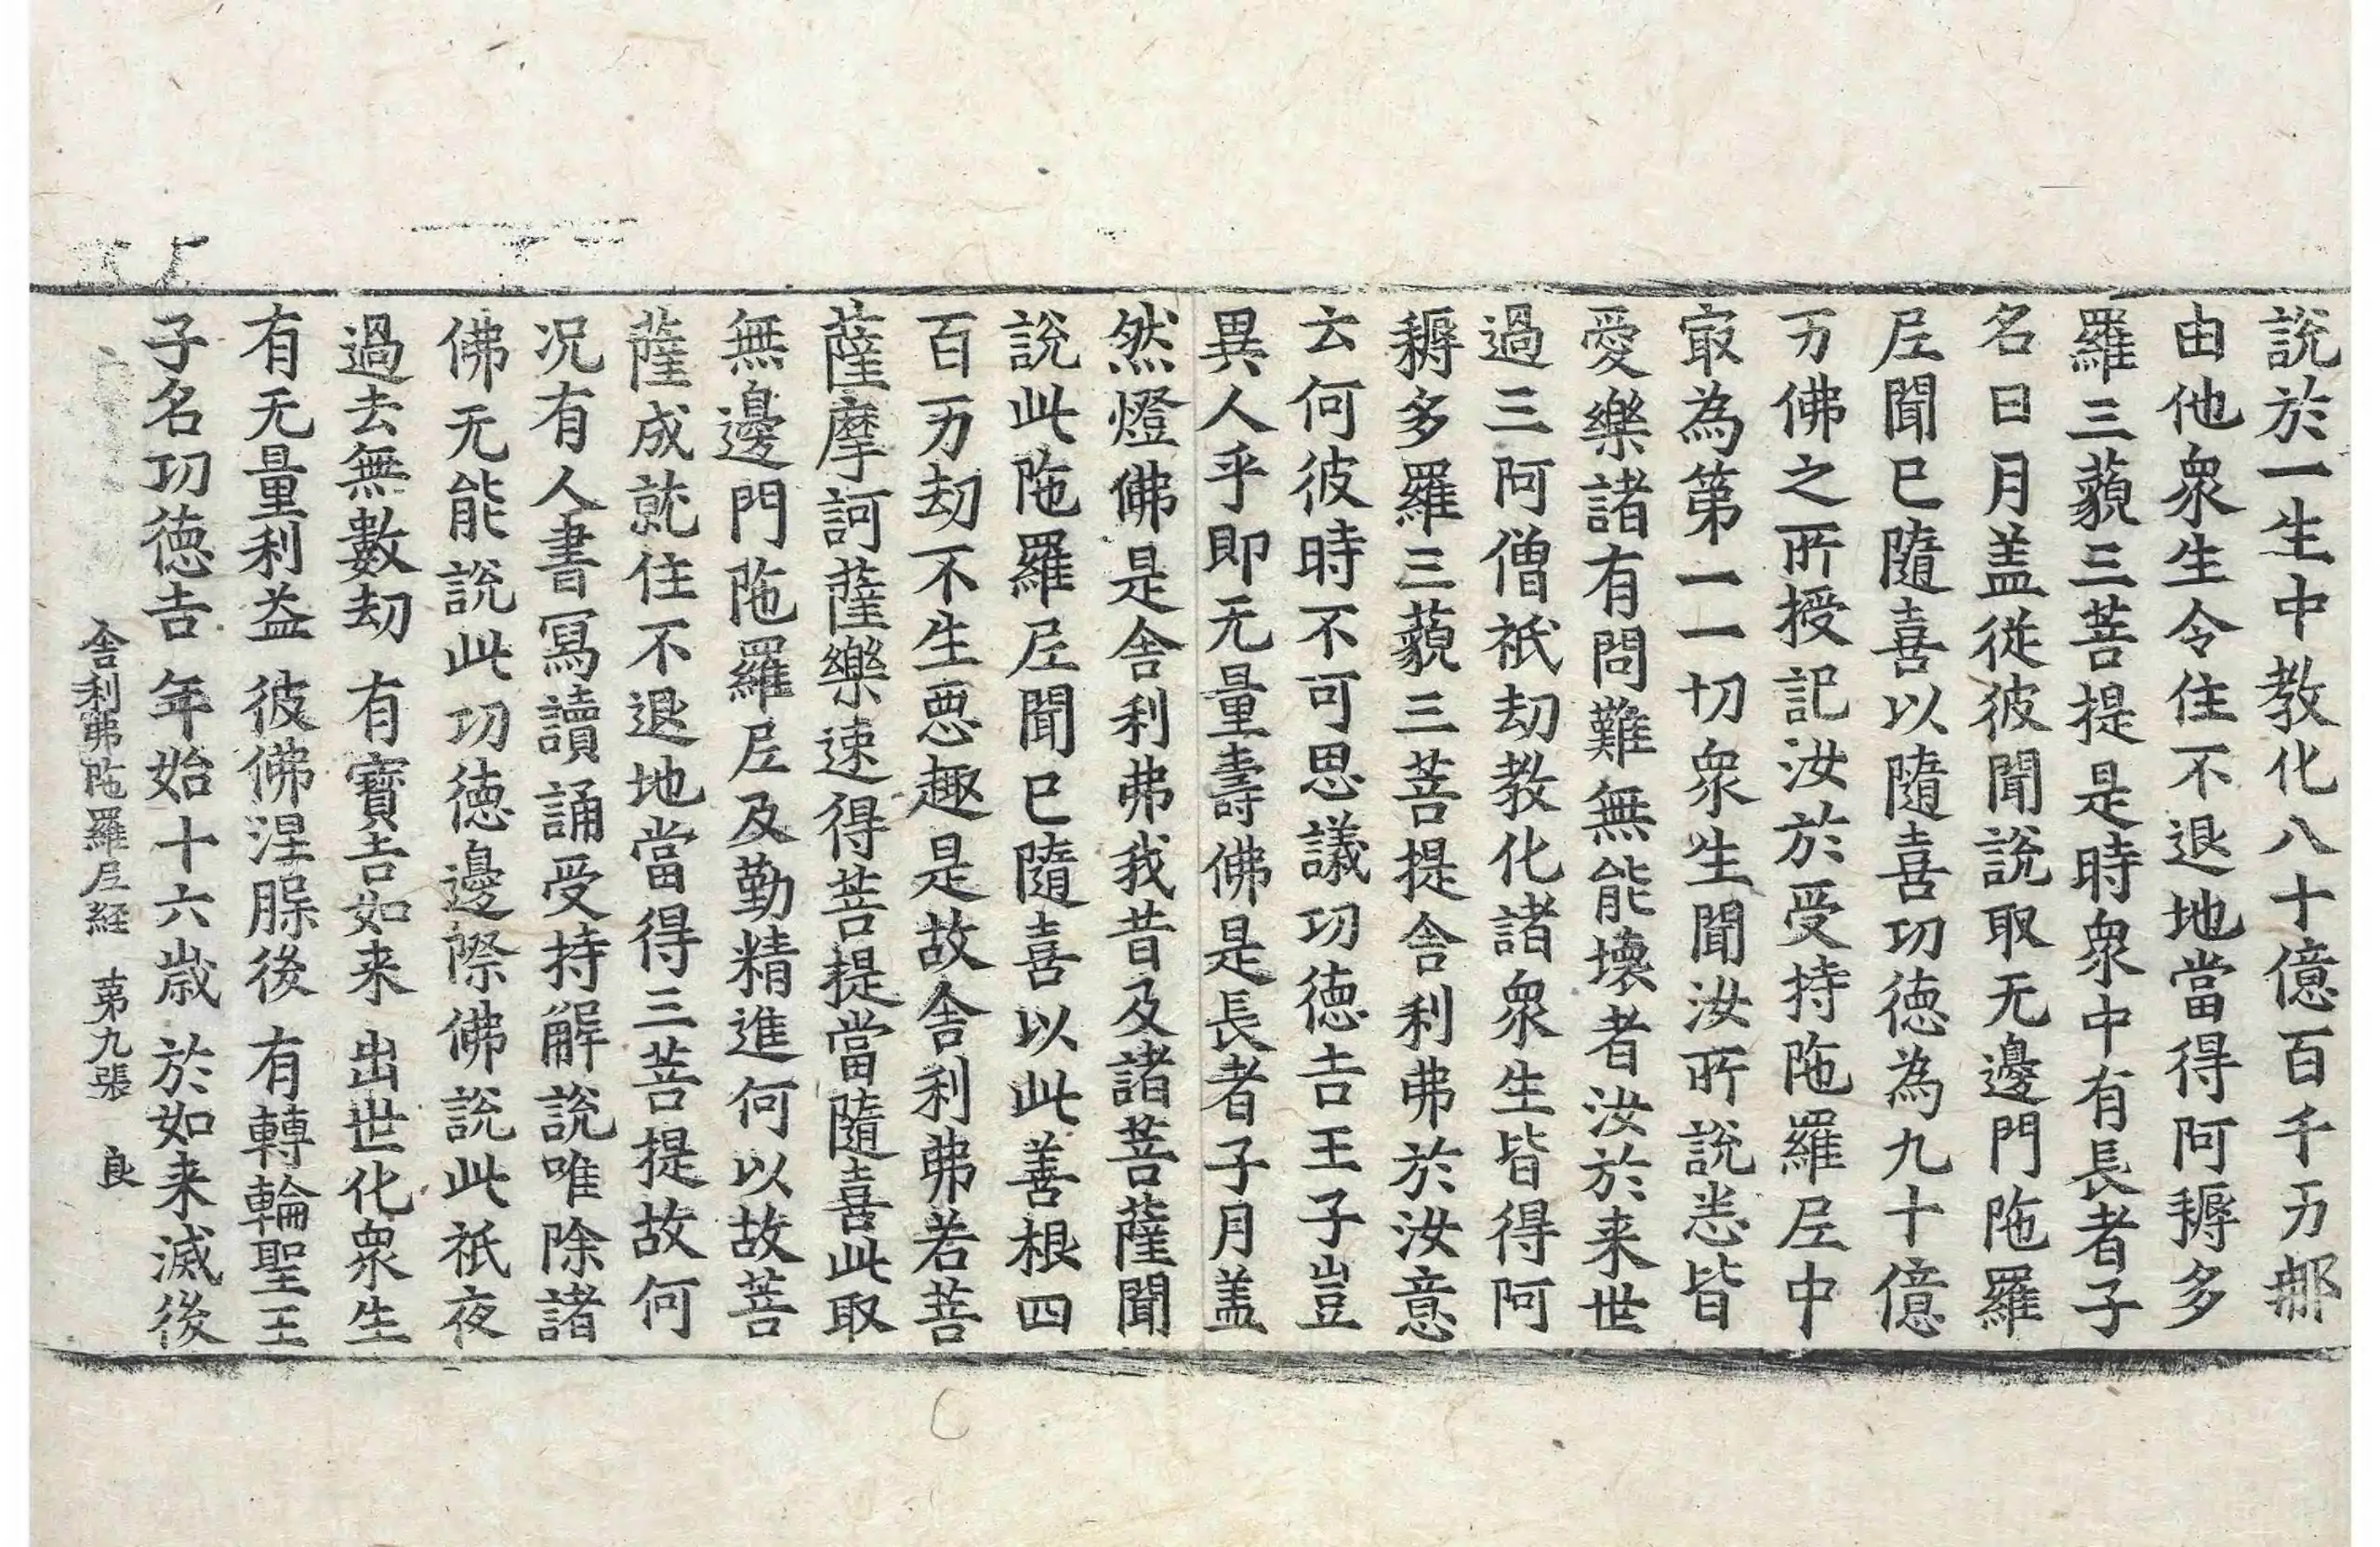 說於一生中教化八十億百千万那
由他衆生令住不退地當得阿耨多
羅三藐三菩提是時衆中有長者子
名曰月盖從彼聞說取无邊門陁羅
𡰱聞已隨喜以隨喜功德為九十億
万佛之所授記汝於受持陁羅𡰱中
㝡為第一一切衆生聞汝所說悉皆
愛樂諸有問難無能壞者汝於来世
過三阿僧祇劫教化諸衆生皆得阿
耨多羅三藐三菩提舍利弗於汝意
云何彼時不可思議功德吉王子豈
異人乎即无量壽佛是長者子月盖
然燈佛是舍利弗我昔及諸菩薩聞
說此陁羅𡰱聞已隨喜以此善根四
百万劫不生惡趣是故舍利弗若菩
薩摩訶薩樂速得菩提當隨喜此取
無邊門陁羅𡰱及勤精進何以故菩
薩成就住不退地當得三菩提故何
况有人書寫讀誦受持解說唯除諸
佛无能說此功德邊際佛說此祇夜
過去無數劫 有寶吉如来 出世化衆生
有无量利益 彼佛涅槃後 有轉輪聖王
子名功德吉 年始十六歲 於如来滅後
舍利弗陁羅𡰱経 苐九張 良